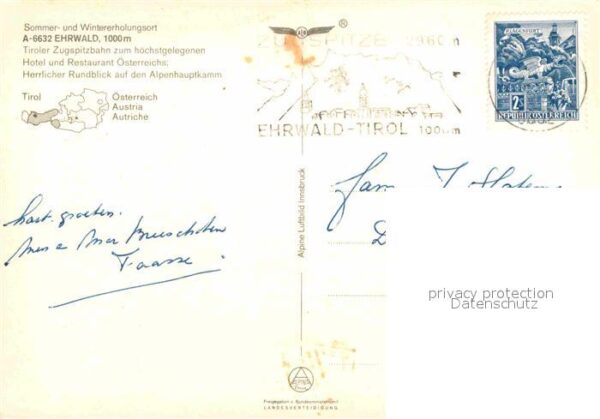 Sommer- und Wintererholungsort
A-6632 EHRWALD, 1000m
Tiroler Zugspitzbahn zum höchstgelegenen
Hotel und Restaurant Österreichs;
Herrlicher Rundblick auf den Alpenhauptkamm
Tirol
Österreich
Austria
Autriche
ZUGSPITZE 2960m
EHRWALD-TIROL 1000m
KLAGENFURT
2S
REPUBLIK ÖSTERREICH
Fam. J.
hart. groeten.
Faasse
Alpine Luftbild Innsbruck
privacy protection
Datenschutz
Freigegeben v. Bundesministerium f.
LANDESVERTEIDIGUNG